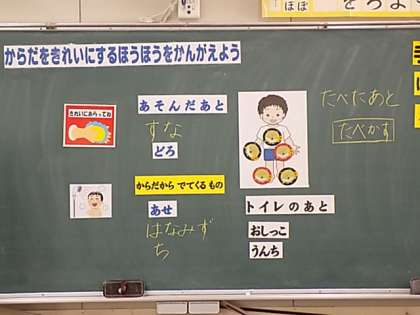 からだをきれいにするほうほうをかんがえよう
きれいにあらってね
あそんだあと
すな
どろ
からだから でてくる もの
あせ
はなみず
ち
たべたあと
たべかす
トイレ の あと
おしっこ
うんち